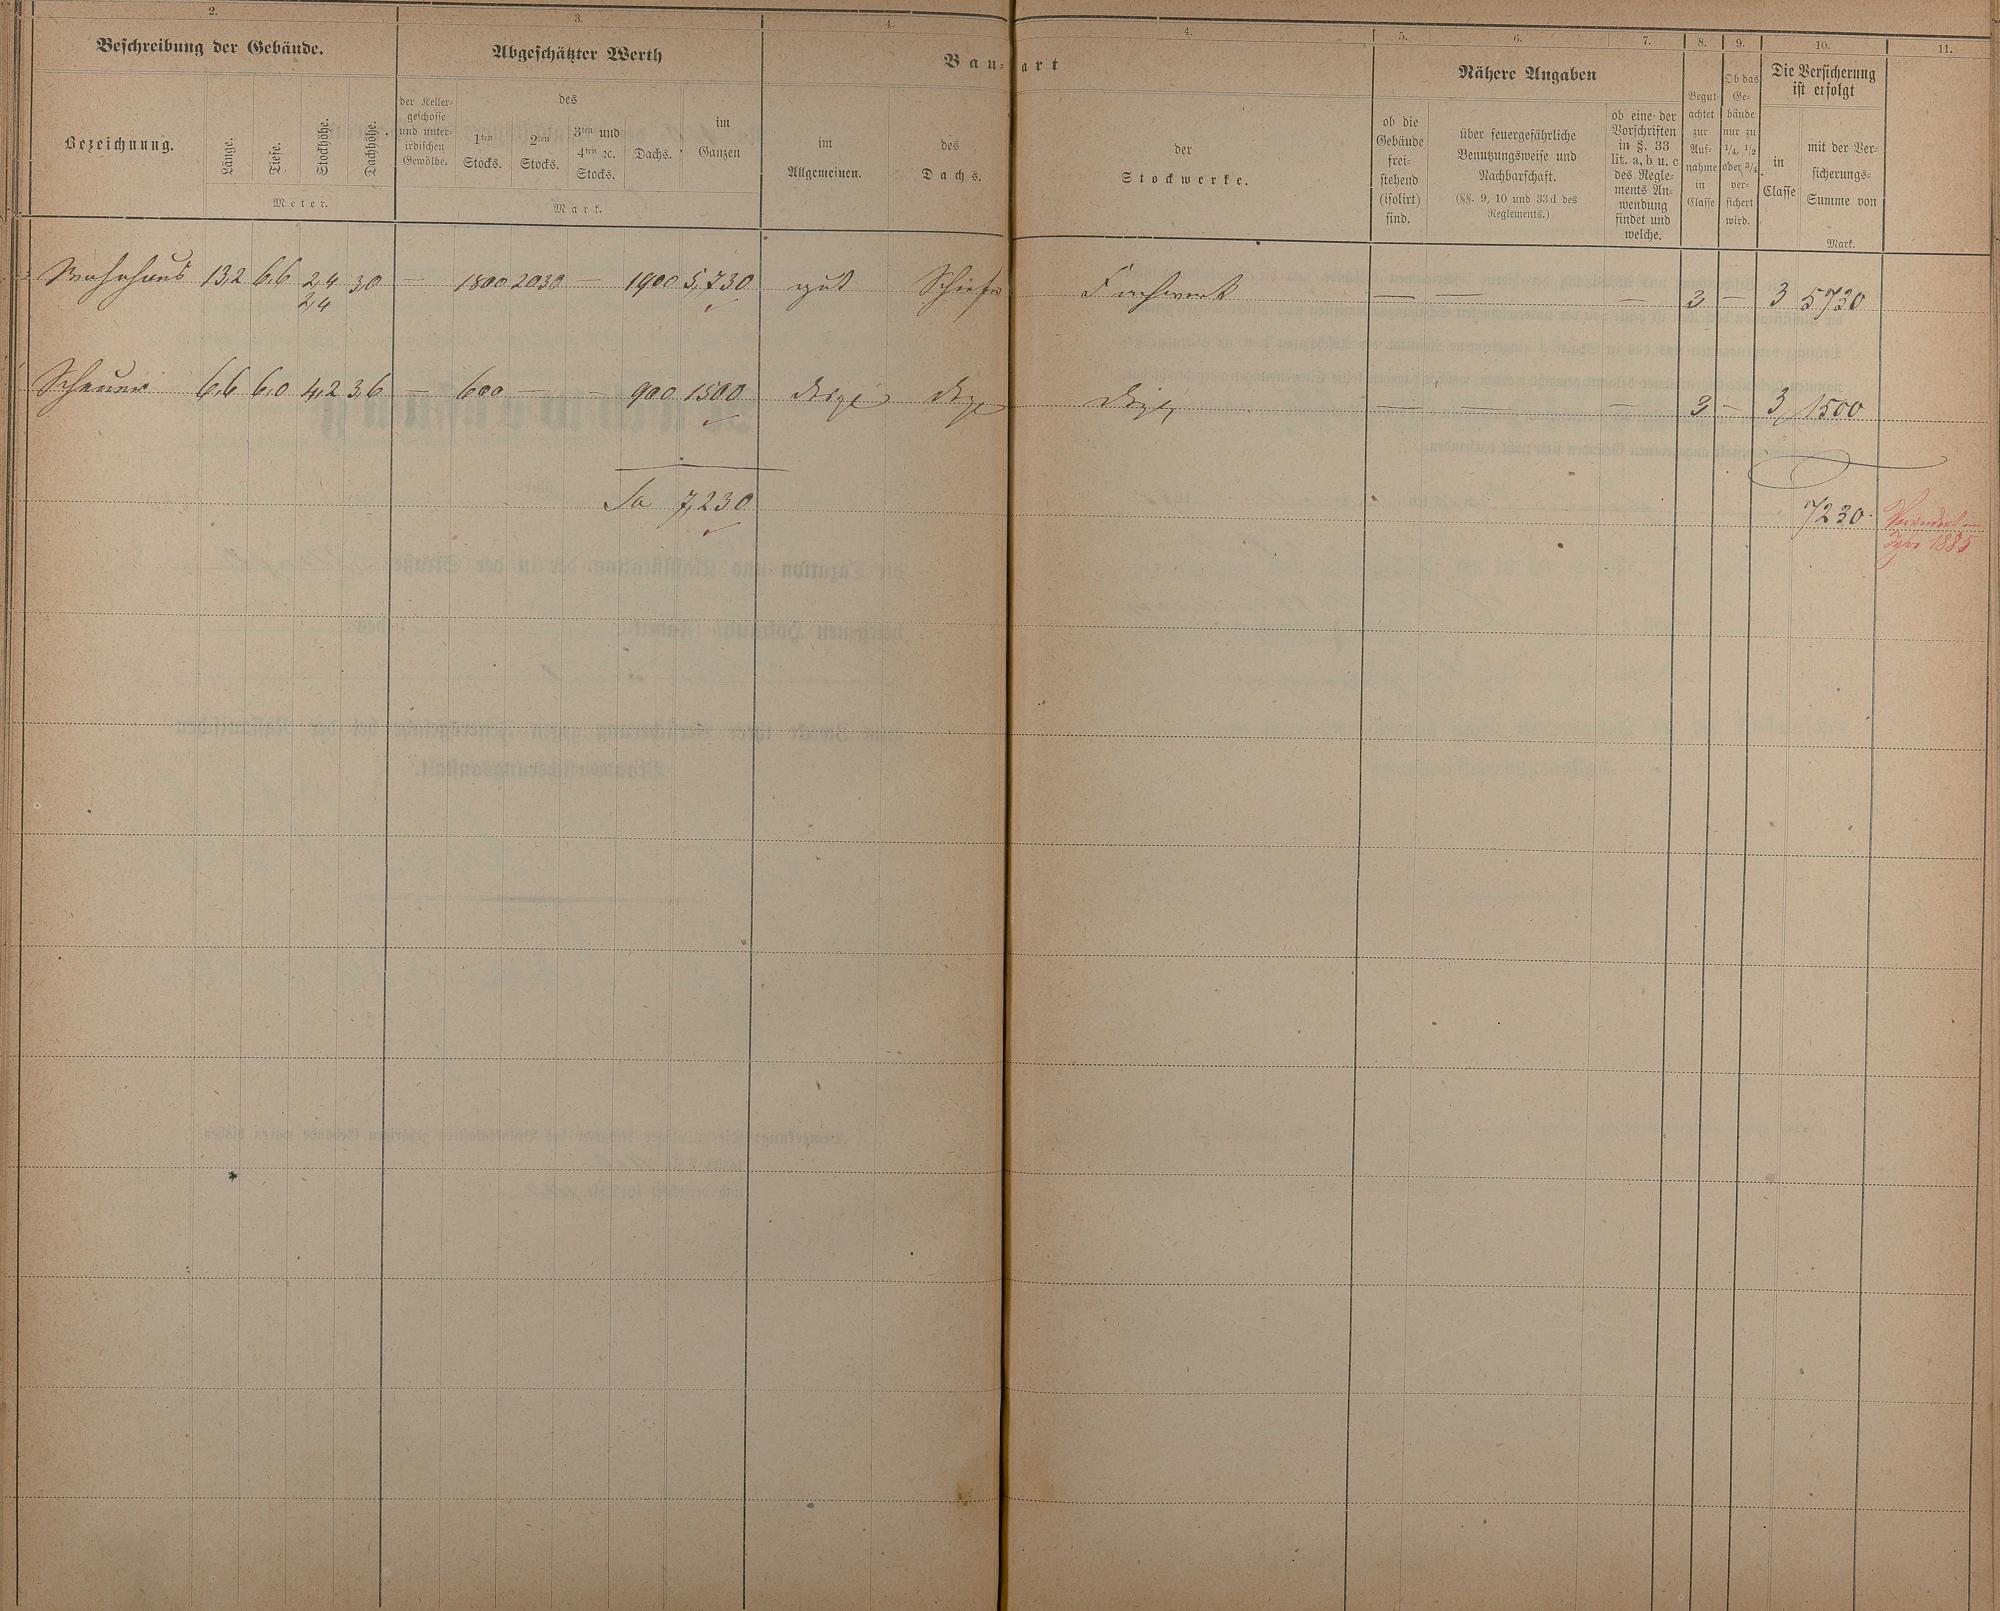 2. 3. 4. 4. 5. 6. 7. 8. 9. 10. 11.
Beschreibung der Gebäude.
Abgeschätzter Werth
Bau-art
Nähere Angaben
Die Versicherung
ist erfolgt
Bezeichnung.
Länge.
Tiefe.
Stockhöhe.
Dachhöhe.
Meter.
der Keller-
geschosse
und unter-
irdischen
Gewölbe.
des
1ten
Stocks.
2ten
Stocks.
3ten und
4ten ꝛc.
Stocks.
Dachs.
im
Ganzen
Mark.
im
Allgemeinen.
des
Dachs.
der
Stockwerke.
ob die
Gebäude
frei-
stehend
(isolirt)
sind.
über feuergefährliche
Benutzungsweise und
Nachbarschaft.
(§§. 9, 10 und 33d des
Reglements.)
ob eine der
Vorschriften
in §. 33
lit. a, b u. c
des Regle-
ments An-
wendung
findet und
welche.
Begut-
achtet
zur
Auf-
nahme
in
Classe
Ob das
Ge-
bäude
nur zu
1/4, 1/2
oder 3/4
ver-
sichert
wird.
in
Classe
mit der Ver-
sicherungs-
Summe von
Mark.
Wohnhaus 13,2 6,6 2,4 3,0 — 1800 2030 — 1900 5,730 gut Schiefer Fachwerk — — — 3 — 3 5730
2,4
Scheuer 6,6 6,0 4,2 3,6 — 600 — — 900 1500 desgl desgl desgl — — — 3 — 3 1500
Sa 7,230
7230
1885